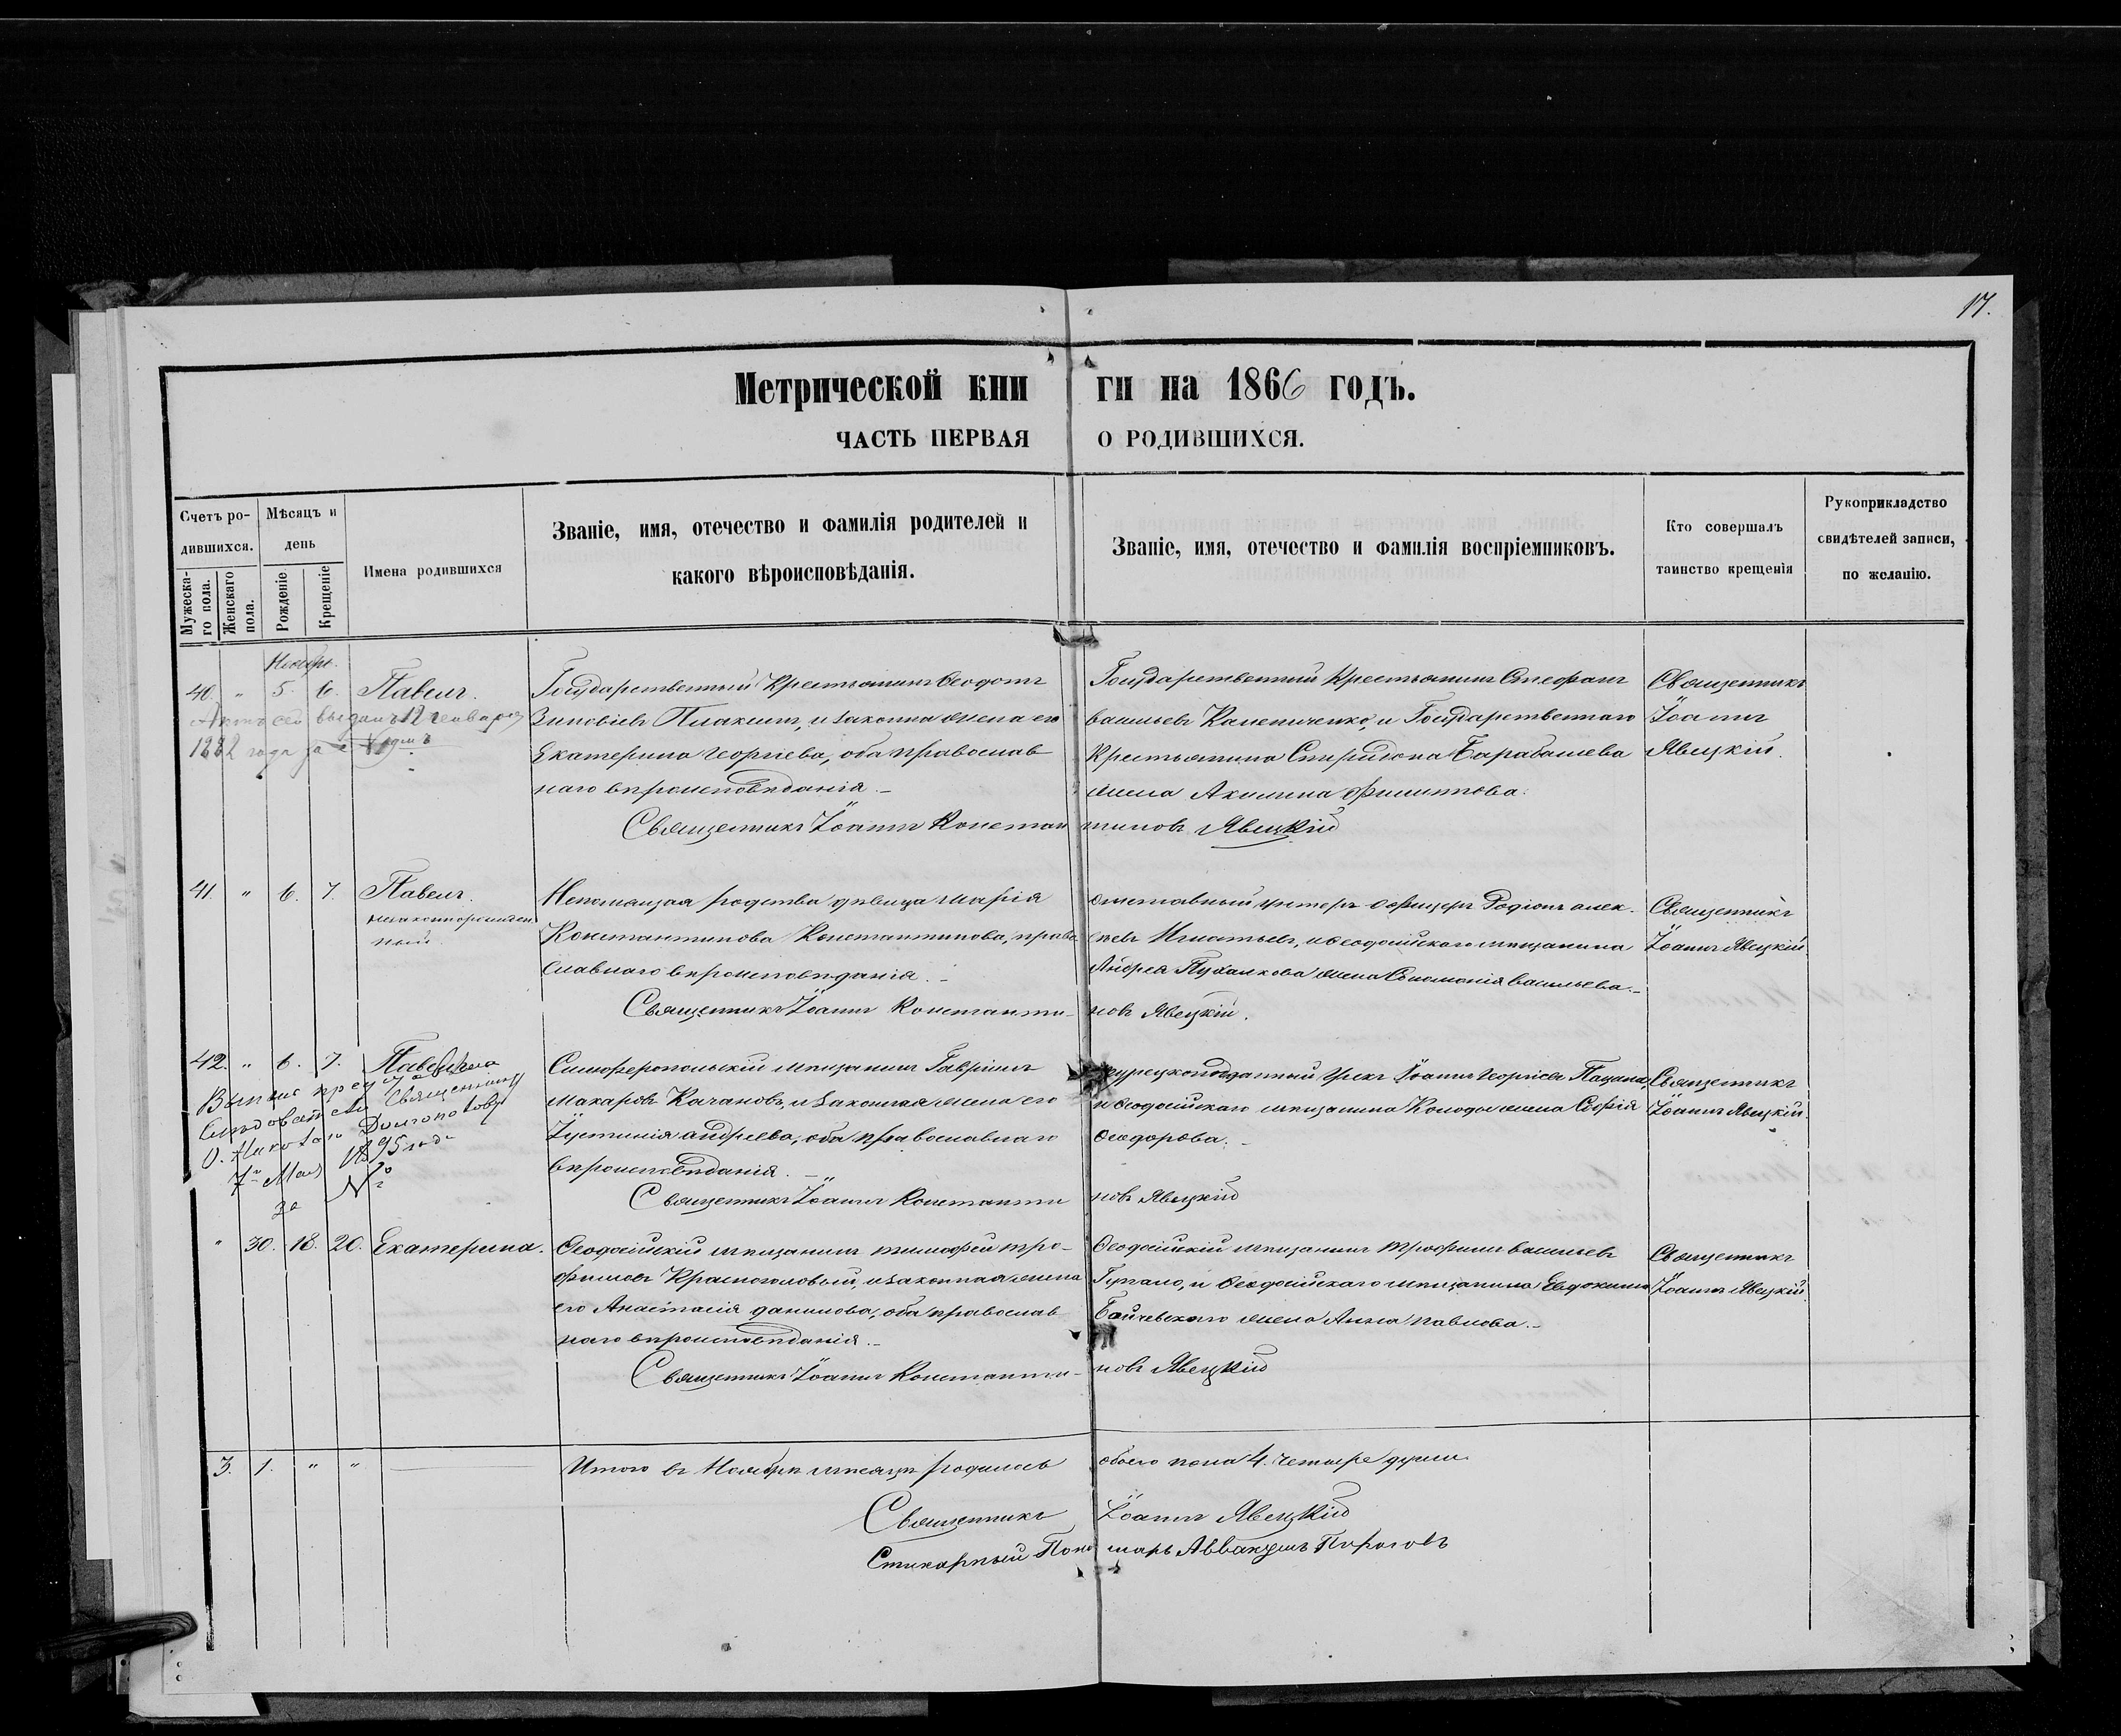 17.
Метрической кни ги на 1866 годъ.
ЧАСТЬ ПЕРВАЯ О РОДИВШИХСЯ.
Счетъ ро-
дившихся.
Мужеска-
го пола.
Женскаго
пола.
Мѣсяцъ и
день
Рожденіе
Крещеніе
Имена родившихся
Званіе, имя, отечество и фамилія родителей и
какого вѣроисповѣданія.
Званіе, имя, отечество и фамилія воспріемниковъ.
Кто совершалъ
таинство крещенія
Рукоприкладство
свидѣтелей записи,
по желанію.
Ноябрь.
40. " 5. 6. Павелъ.
Актъ сей выданъ 12 генваря
1882 года за №
Государственный Крестьянинъ Ѳеодотъ
Зиновіевъ Плаксинъ, и законна жена его
Екатерина Георгіева, оба православ
наго вѣроисповѣданія.-
Священникъ Іоаннъ Констан тиновъ Явецкій
Государственный Крестьянинъ Стефанъ
васильевъ Капениченко, и Государственнаго
Крестьянина Спиридона Барабашева
жена Акилина Филиппова.
Священникъ
Іоаннъ
Явецкій.
41. " 6. 7. Павелъ.
незаконнорожден
ный.
Непомнящая родства дѣвица Марія
Константинова Константинова, право
славнаго вѣроисповѣданія.-
Священникъ Іоаннъ Константи- новъ Явецкій.
отставный унтеръ офицеръ Родіонъ алек-
сѣевъ Игнатьевъ, и Ѳеодосійскаго мѣщанина
Андрея Пухалкова жена Соломонія васильева.-
Священникъ
Іоаннъ Явецкій.
42. " 6. 7.
Выпись
Священнику
О. Николаю Долгополову
7го Мая 1895 года
за №
Симферопольскій мѣщанинъ Гавріилъ
Макаровъ Качановъ, и законная жена его
Іустинія андреева, оба православнаго
вѣроисповѣданія.-
Священникъ Іоаннъ Константи новъ Явецкій
турецкоподданный Грекъ Іоаннъ Георгіевъ
и Ѳеодосійскаго мѣщанина Колоды жена Софія
Ѳеодорова.-
Священникъ
Іоаннъ Явецкій.
" 30. 18. 20. Екатерина.
Ѳеодосійскій мѣщанинъ тимофей тро-
фимовъ Красноголовый, и законная жена
его Анастасія данилова, оба православ
наго вѣроисповѣданія.-
Священникъ Іоаннъ Константи- новъ Явецкій
Ѳеодосійскій мѣщанинъ трофимъ васильевъ
и Ѳеодосійскаго мѣщанина Евдокима
жена Анна павлова.-
Священникъ
Іоаннъ Явецкій.
3. 1. " " Итого въ Ноябрѣ мѣсяцѣ родилось обоего пола 4. четыре души
Священникъ Іоаннъ Явецкій
Стихарный Поно марь Аввакумъ Пироговъ